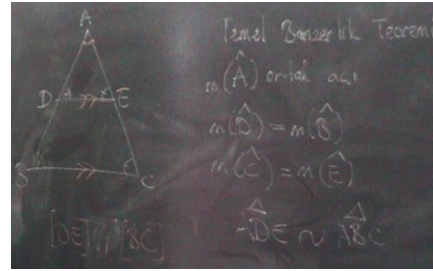 A
D
E
B
C
[DE] // [BC]
Temel Benzerlik Teoremi
m(Â) ortak açı
m(D̂) = m(B̂)
m(Ĉ) = m(Ê)
ADE ~ ABC